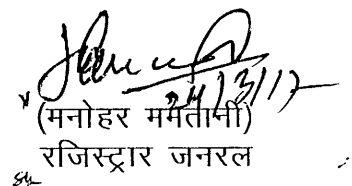 24/3/17
(मनोहर ममतानी)
रजिस्ट्रार जनरल